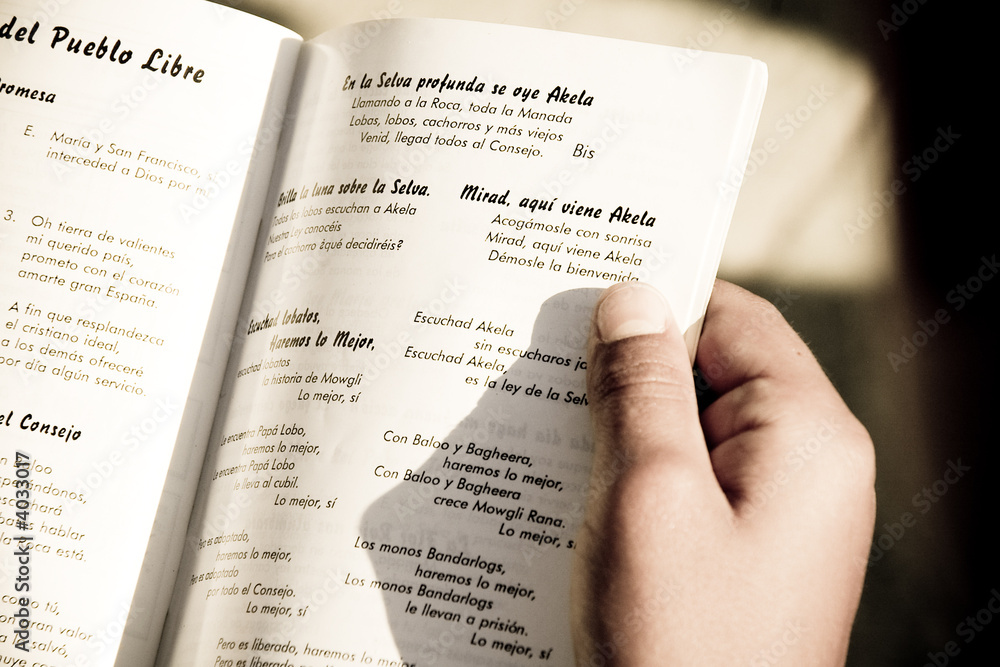 del Pueblo Libre
E. María y San Francisco,
interceded a Dios por
3. Oh tierra de valientes
mi querido país,
prometo con el corazón
amarte gran España.
A fin que resplandezca
el cristiano ideal,
a los demás ofreceré
por día algún servicio.
el Consejo
hablar
está.
como tú,
gran valor
salvó,
En la Selva profunda se oye Akela
Llamando a la Roca, toda la Manada
Lobas, lobos, cachorros y más viejos
Venid, llegad todos al Consejo. Bis
Brilla la luna sobre la Selva.
Todos los lobos escuchan a Akela
Nuestra Ley conocéis
Para el cachorro ¿qué decidiréis?
Mirad, aquí viene Akela
Acogámosle con sonrisa
Mirad, aquí viene Akela
Démosle la bienvenida
Escuchad lobatos,
Haremos lo Mejor,
escuchad lobatos
la historia de Mowgli
Lo mejor, sí
La encuentra Papá Lobo,
haremos lo mejor,
La encuentra Papá Lobo
le lleva al cubil.
Lo mejor, sí
Pero es adoptado,
haremos lo mejor,
Pero es adoptado
por todo el Consejo.
Lo mejor, sí
Pero es liberado, haremos lo mejor,
Pero es liberado
Escuchad Akela
sin escucharos
Escuchad Akela,
es la ley de la
Con Baloo y Bagheera,
haremos lo mejor,
Con Baloo y Bagheera
crece Mowgli Rana.
Lo mejor, sí
Los monos Bandarlogs,
haremos lo mejor,
Los monos Bandarlogs
le llevan a prisión.
Lo mejor, sí
Adobe Stock | #4033017